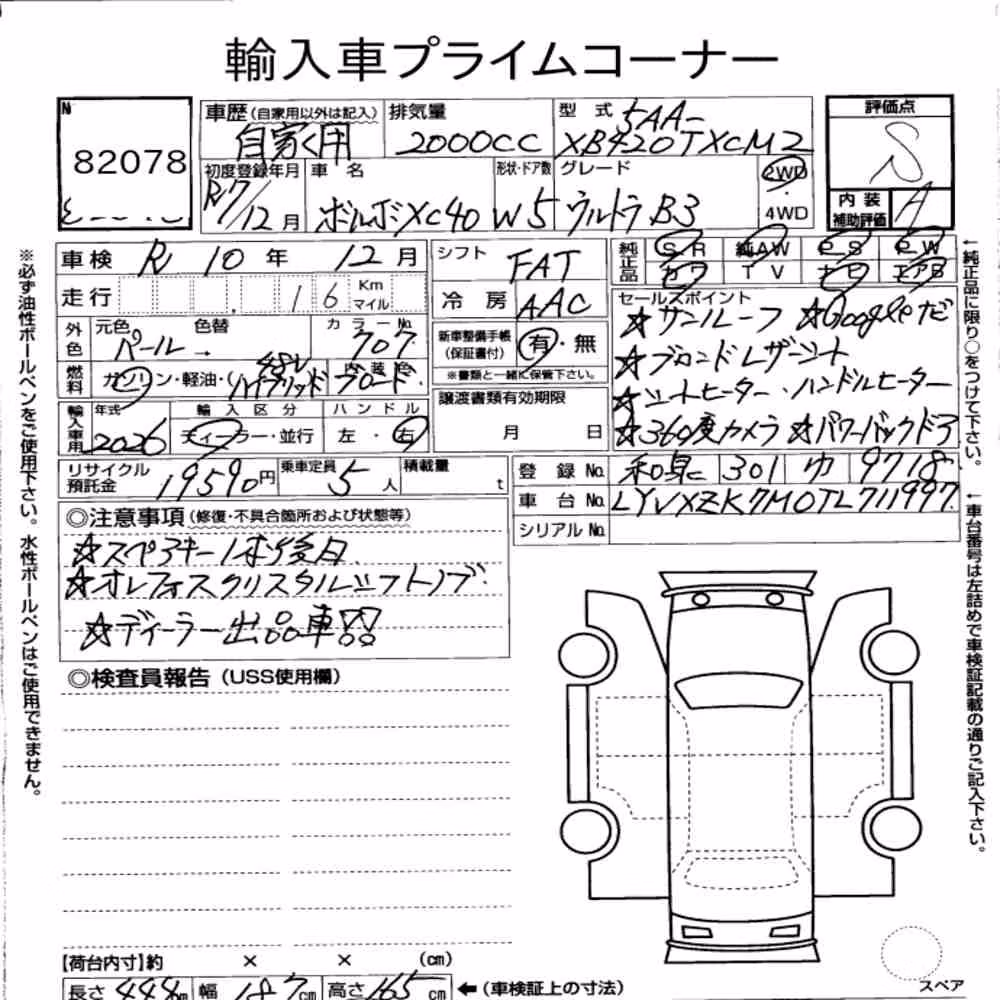 輸入車プライムコーナー
No
82078
車歴(自家用以外は記入)
自家用
排気量
2000CC
型式
5AA-
XB420TXCM2
評価点
S
初度登録年月
R7/12月
車名
ボルボXC40
形状・ドア数
W5
グレード
ウルトラB3
2WD
・
4WD
内装
補助評価
A
車検 R 10年 12月
シフト FAT
純正品
SR 純AW PS PW
カワ TV ナビ エアB
走行 16 Km マイル
冷房 AAC
セールスポイント
☆サンルーフ ☆Googleナビ
☆ブロンドレザーシート
☆シートヒーター・ハンドルヒーター
☆360度カメラ ☆パワーバックドア
外色
元色 パール
色替 →
カラーNo. 707
新車整備手帳
(保証書付)
有・無
※書類と一緒に保管下さい。
燃料
ガソリン・軽油・(48Vハイブリッド
内装色 ブロンド
譲渡書類有効期限
月 日
輸入車用
年式 2026
輸入区分
ディーラー・並行
ハンドル
左・右
リサイクル
預託金
19590円
乗車定員
5人
積載量
t
登録No. 和泉 301 ゆ 9718
車台No. LYVXZK7M0TL711997
シリアルNo.
◎注意事項(修復・不具合箇所および状態等)
☆スペアキー1本後日
☆オレフォスクリスタルシフトノブ
☆ディーラー出品車!!
◎検査員報告(USS使用欄)
【荷台内寸】約 × × (cm)
長さ 444cm 幅 187cm 高さ 165cm ←(車検証上の寸法)
スペア
※必ず油性ボールペンをご使用下さい。水性ボールペンはご使用できません。
←純正品に限り○をつけて下さい。
←車台番号は左詰めで車検証記載の通りご記入下さい。